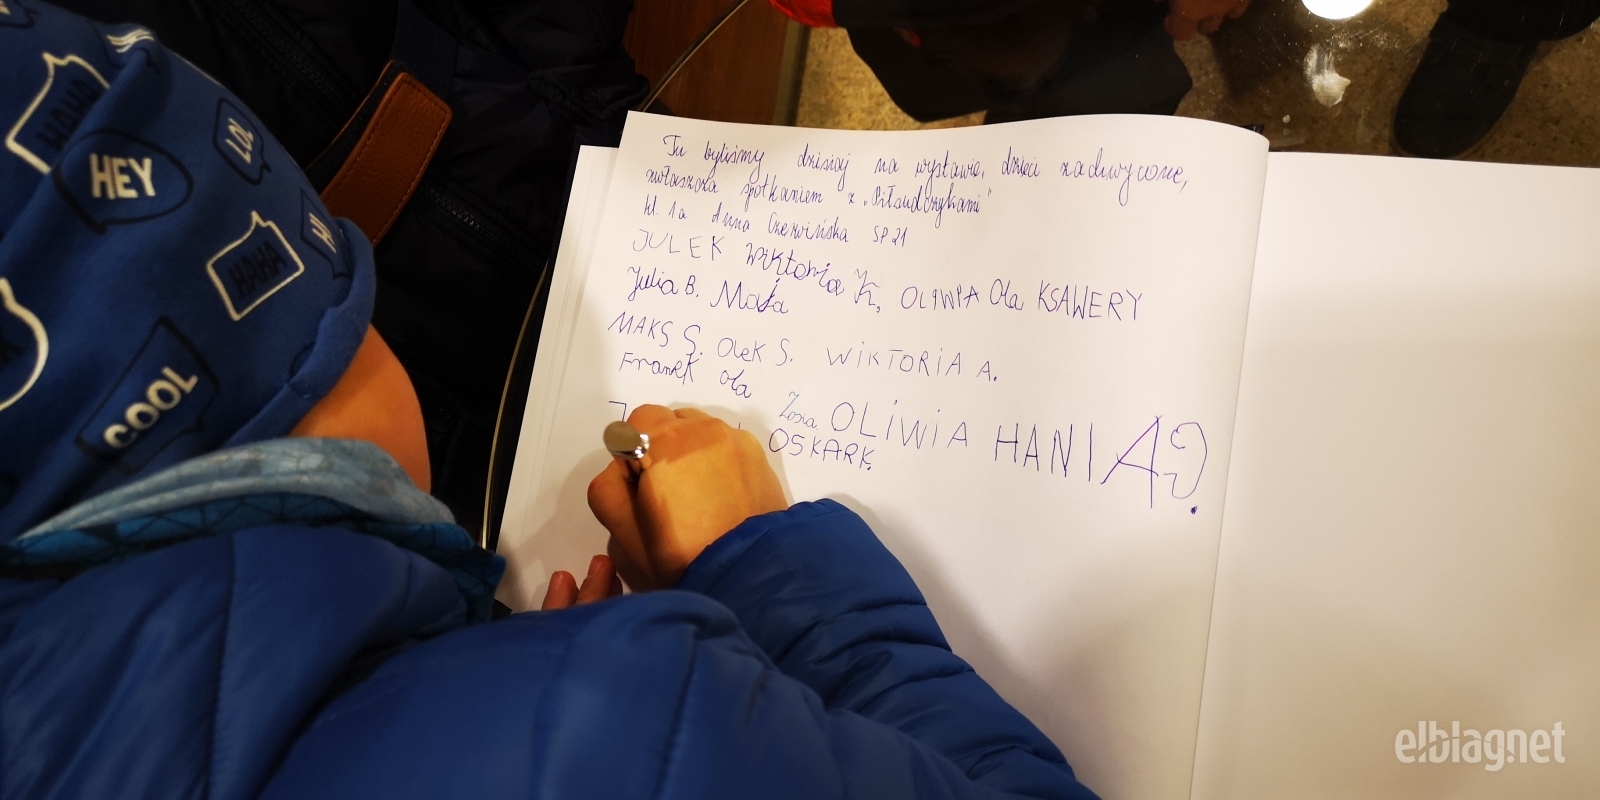 Tu byliśmy dzisiaj na wystawie, dzieci zachwycone,
zwłaszcza spotkaniem z „Piłsudczykami"
kl. 1a Anna Czerwińska SP 21
JULEK Wiktoria K, OLIWIA Ola KSAWERY
Julia B. Maja
MAKS S. Olek S. WIKTORIA A.
Franek Ola
Zosia OLiWiA HANIA
OSKAR K.
HAHA
HEY
LOL
HI
HAHA
COOL
elblagnet